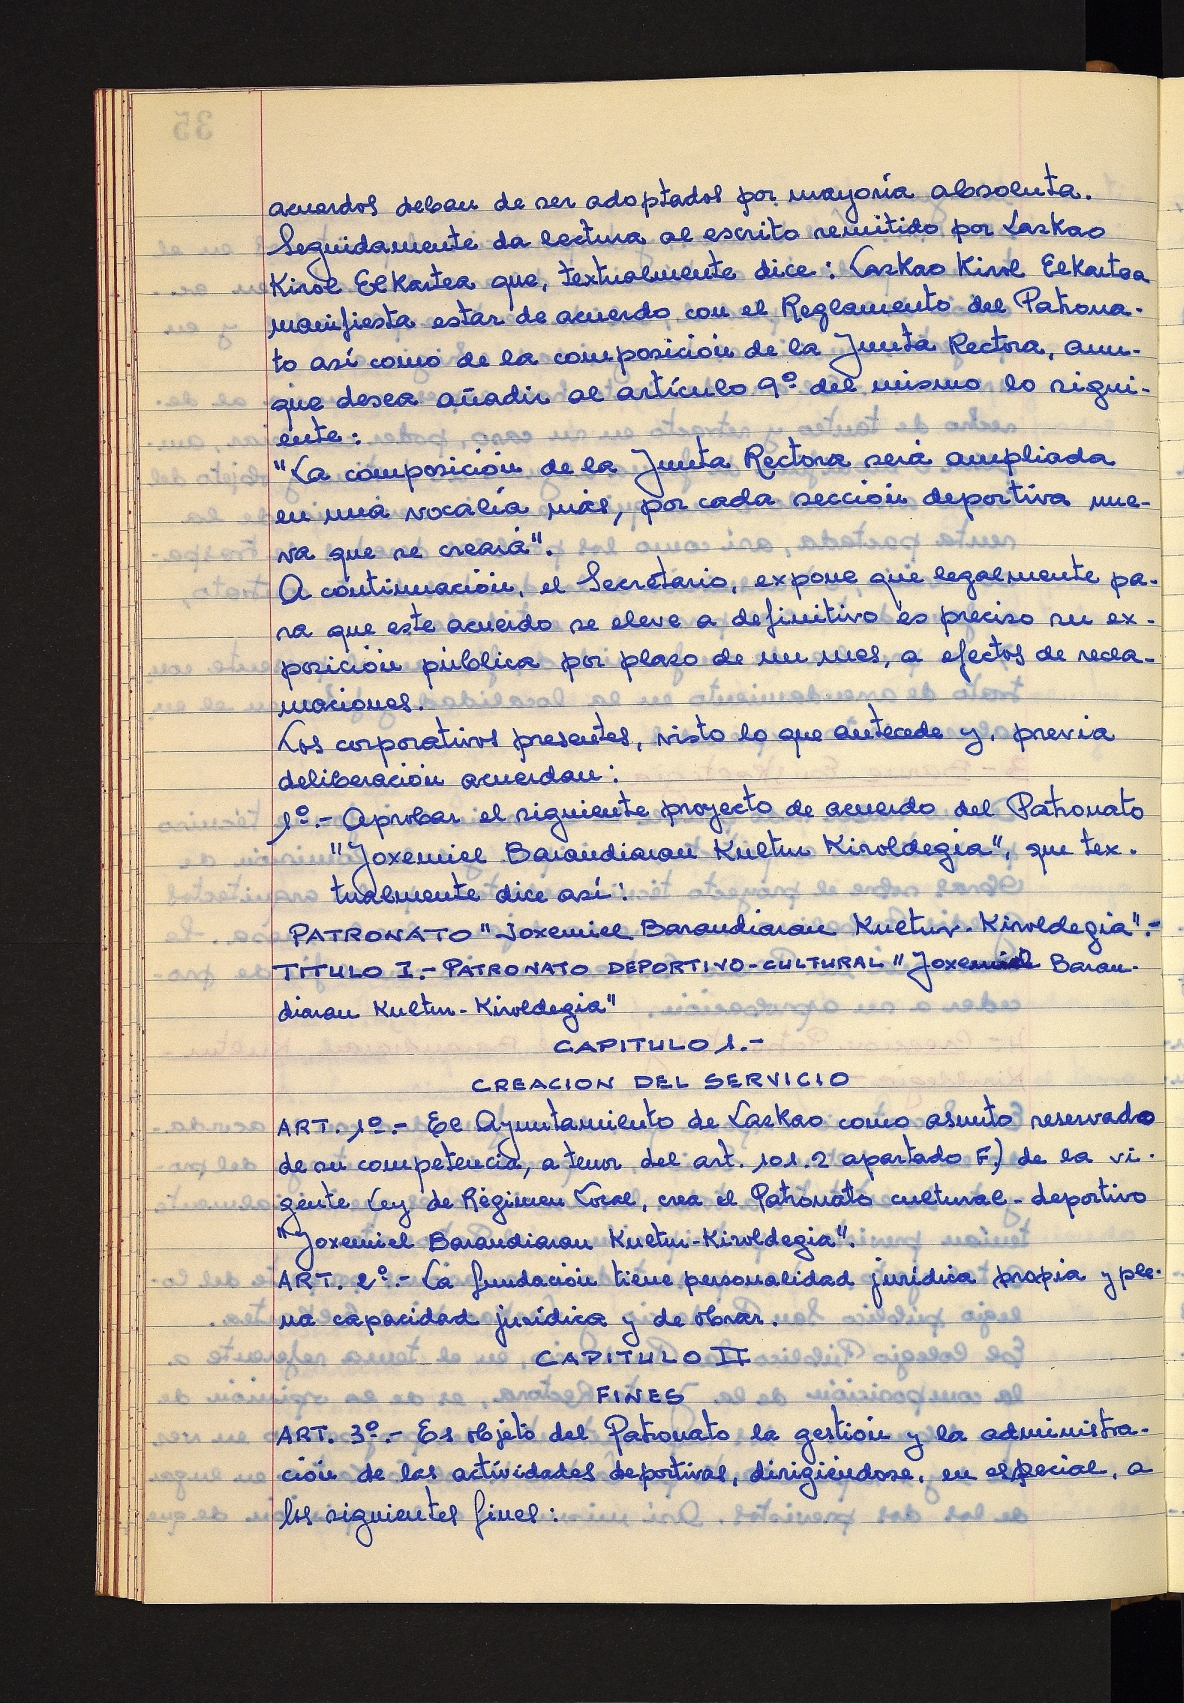 acuerdos deban de ser adoptados por mayoría absoluta.
Seguidamente da lectura al escrito remitido por Lazkao
Kirol Elkartea que, textualmente dice: Lazkao Kirol Elkartea
manifiesta estar de acuerdo con el Reglamento del Patrona-
to así como de la composición de la Junta Rectora, aun-
que desea añadir al artículo 9º del mismo lo sigui-
ente:
"La composición de la Junta Rectora será ampliada
en una vocalía más, por cada sección deportiva nue-
va que se creará".
A continuación, el Secretario, expone que legalmente pa-
ra que este acuerdo se eleve a definitivo es preciso su ex-
posición pública por plazo de un mes, a efectos de recla-
maciones.
Los corporativos presentes, visto lo que antecede y, previa
deliberación acuerdan:
1º.- Aprobar el siguiente proyecto de acuerdo del Patronato
"Joxemiel Barandiaran Kultur Kiroldegia", que tex-
tualmente dice así:
PATRONATO "Joxemiel Barandiaran Kultur-Kiroldegia".-
TITULO I.- PATRONATO DEPORTIVO-CULTURAL "Joxemiel Baran-
diaran Kultur-Kiroldegia"
CAPITULO 1.-
CREACION DEL SERVICIO
ART. 1º.- El Ayuntamiento de Lazkao como asunto reservado
de su competencia, a tenor del art. 101.2 apartado F) de la vi-
gente Ley de Régimen Local, crea el Patronato cultural-deportivo
"Joxemiel Barandiaran Kultur-Kiroldegia".
ART. 2º.- La fundación tiene personalidad jurídica propia y ple-
na capacidad jurídica y de obrar.
CAPITULO II
FINES
ART. 3º.- Es objeto del Patronato la gestión y la administra-
ción de las actividades deportivas, dirigiéndose, en especial, a
los siguientes fines: